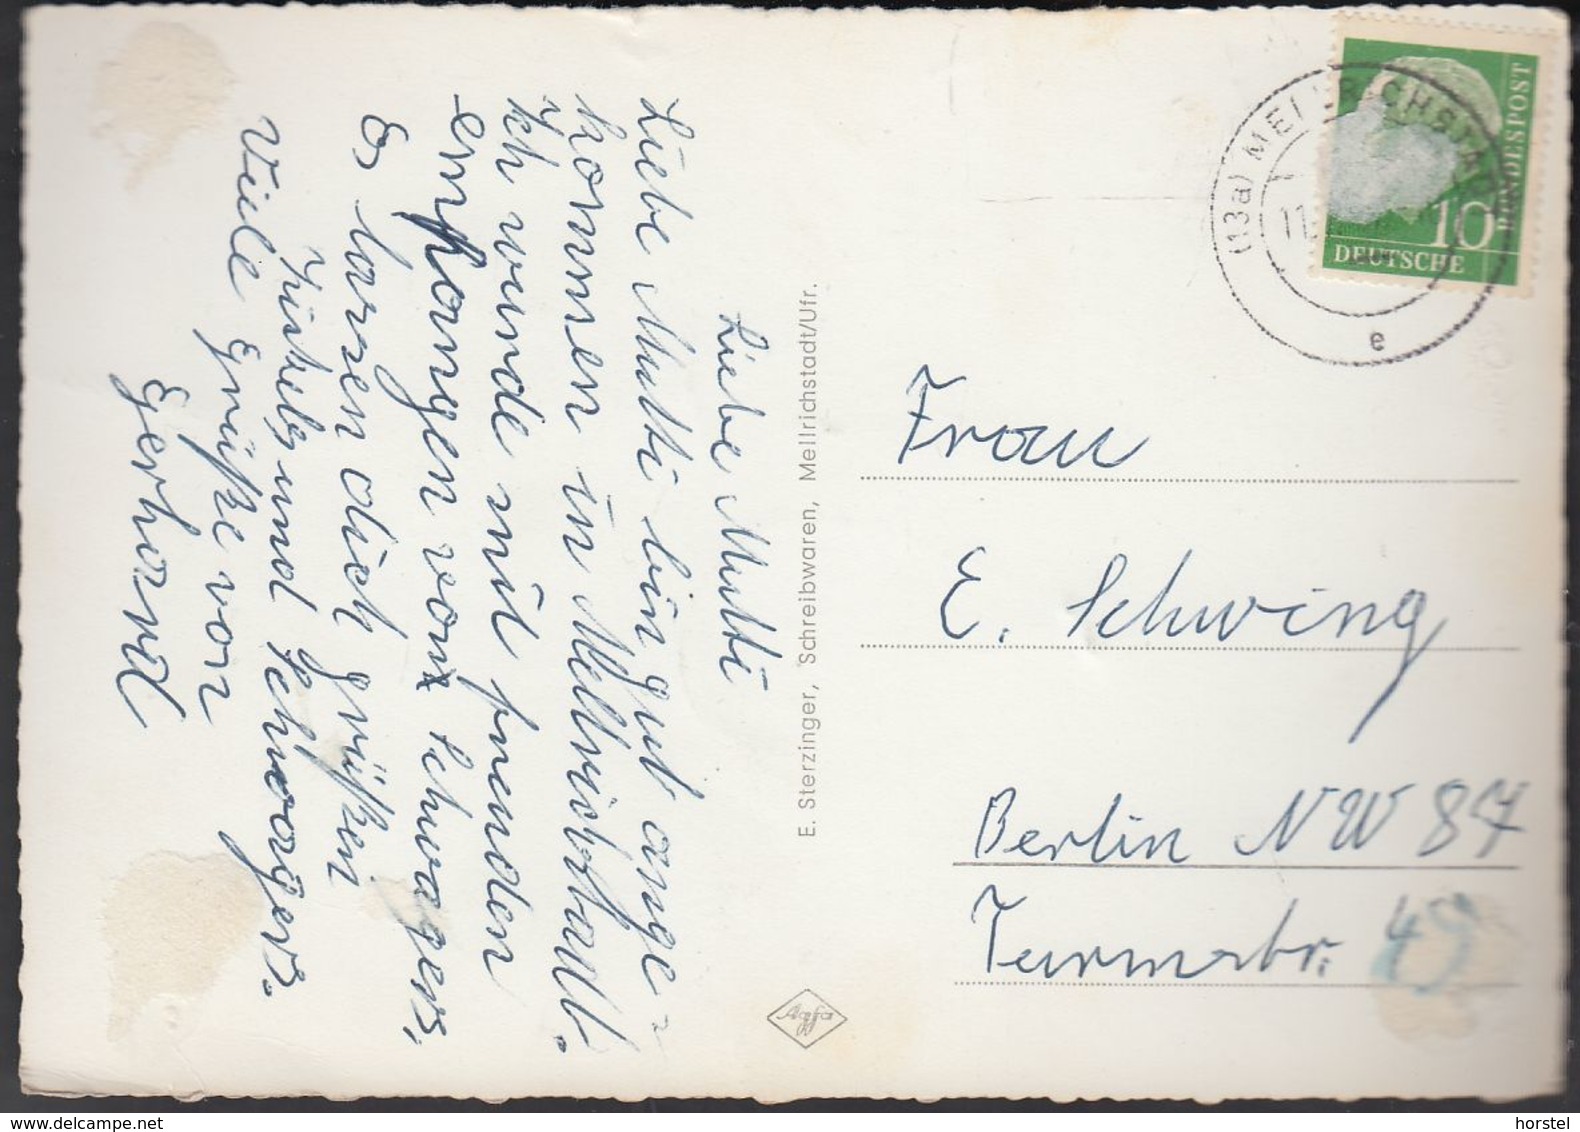 Liebe Mutti
Liebe Mutti bin gut ange-
kommen in Mellrichstadt.
Ich wurde mit freuden
empfangen von Schwagers,
Es lassen dich grüßen
und Schwagers.
Viele Grüße von
Gerhard
E. Sterzinger, Schreibwaren, Mellrichstadt/Ufr.
Agfa
(13a) MELLRICHSTADT
11.
e
DEUTSCHE
BUNDESPOST
10
Frau
E. Schwing
Berlin NW 87
Turmstr.
delcampe.net
horstel